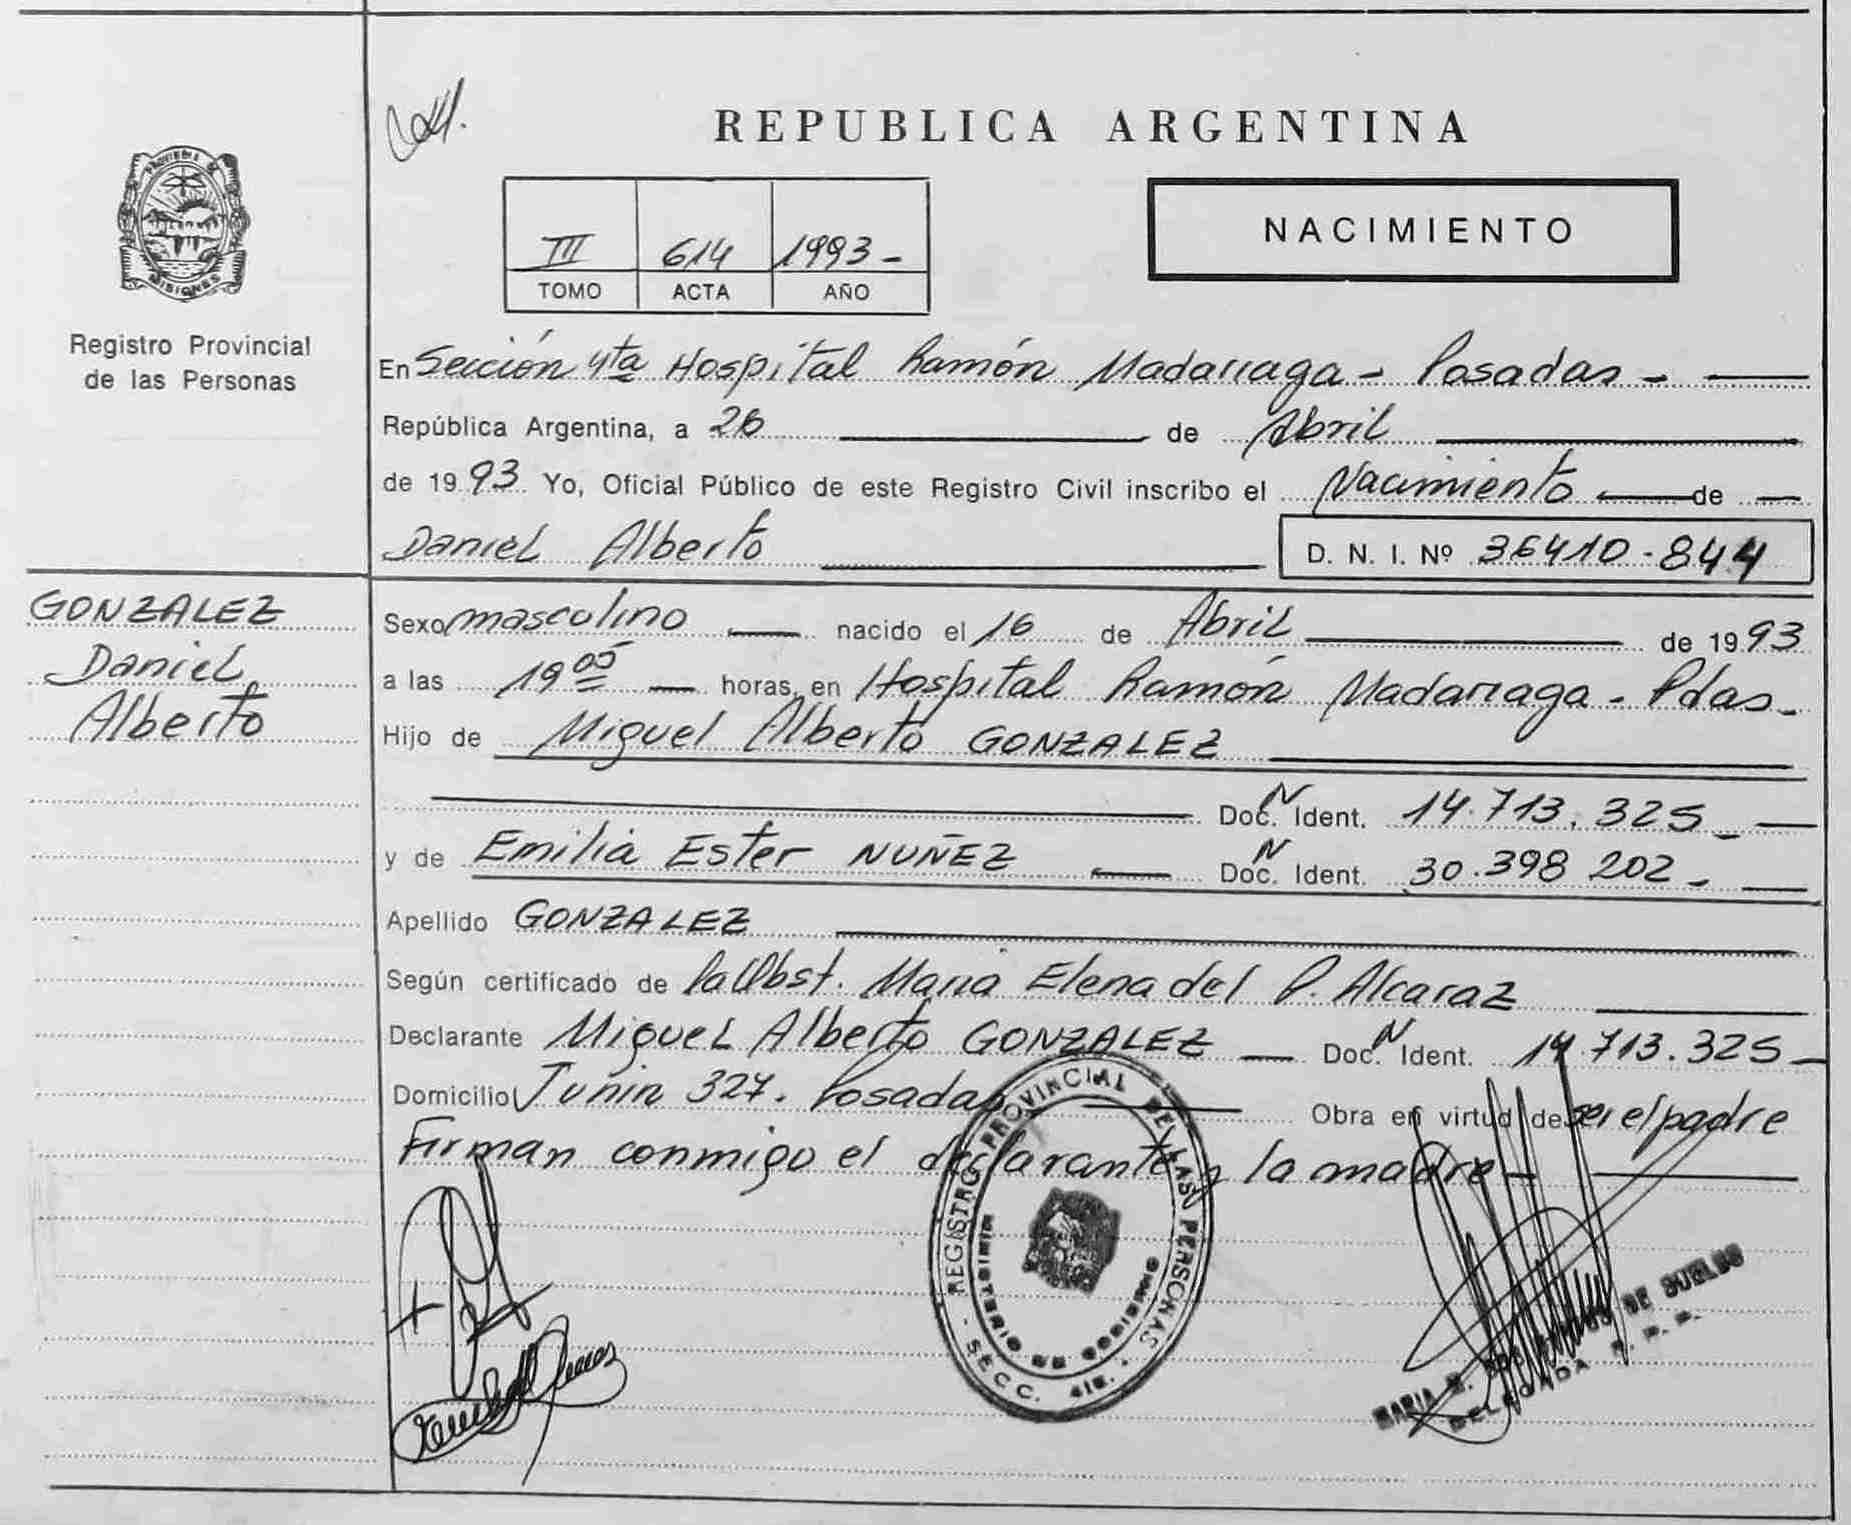 REPUBLICA ARGENTINA
PROVINCIA DE MISIONES
Registro Provincial
de las Personas
NACIMIENTO
III 614 1993-
TOMO ACTA AÑO
En Sección 4ta Hospital Ramón Madariaga - Posadas -
República Argentina, a 26 de Abril
de 1993 Yo, Oficial Público de este Registro Civil inscribo el Nacimiento de
Daniel Alberto D. N. I. Nº 36410-844
GONZALEZ
Daniel
Alberto
Sexo masculino nacido el 16 de Abril de 1993
a las 19 05 horas, en Hospital Ramón Madariaga - Pdas -
Hijo de Miguel Alberto GONZALEZ
Doc. N Ident. 14.713.325 -
y de Emilia Ester NUÑEZ Doc. N Ident. 30.398 202 -
Apellido GONZALEZ
Según certificado de la Obst. Maria Elena del P. Alcaraz
Declarante Miguel Alberto GONZALEZ Doc. N Ident. 14.713.325 -
Domicilio Junin 327. Posadas Obra en virtud de ser el padre
Firman conmigo el declarante y la madre -
REGISTRO PROVINCIAL DE LAS PERSONAS
MINISTERIO DE GOBIERNO
SECC. 4ta.
MARIA DE SUELDO
DELEGADA R. P. P.